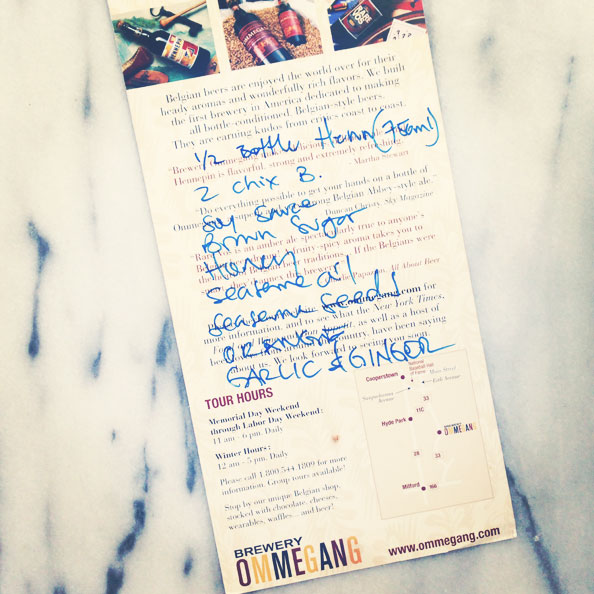 HENNEPIN
OMMEGANG
Belgian beers are enjoyed the world over for their
heady aromas and wonderfully rich flavors. We built
the first brewery in America dedicated to making
all bottle-conditioned, Belgian-style beers.
They are earning kudos from critics coast to coast.
1/2 Bottle Henn (750ml)
Hennepin is flavorful, strong and extremely refreshing."
- Martha Stewart
2 Chix B.
"Do everything possible to get your hands on a bottle of
Soy Sauce
strong Belgian Abbey-style ale."
- Duncan Christy, Sky Magazine
Brown Sugar
is an amber ale
true to anyone's
Honey
fruity-spicy aroma takes you to
If the Belgians were
Seasame oil
All About Beer
Seasame Seeds
.ommegang.com for
more information, and to see what the New York Times,
as well as a host of
ORANGE
country, have been saying
about us. We look forward to seeing you soon.
GARLIC & GINGER
TOUR HOURS
Memorial Day Weekend
through Labor Day Weekend:
11 am - 6 pm, Daily
Winter Hours:
12 am - 5 pm, Daily
Please call 1.800.544.1809 for more
information. Group tours available!
Stop by our unique Belgian shop,
stocked with chocolate, cheeses,
wearables, waffles... and beer!
Cooperstown
National
Baseball Hall
of Fame
Main Street
Susquehanna
Avenue
Elk Avenue
33
11C
Hyde Park
BREWERY
OMMEGANG
28
33
Milford
166
BREWERY
OMMEGANG
www.ommegang.com